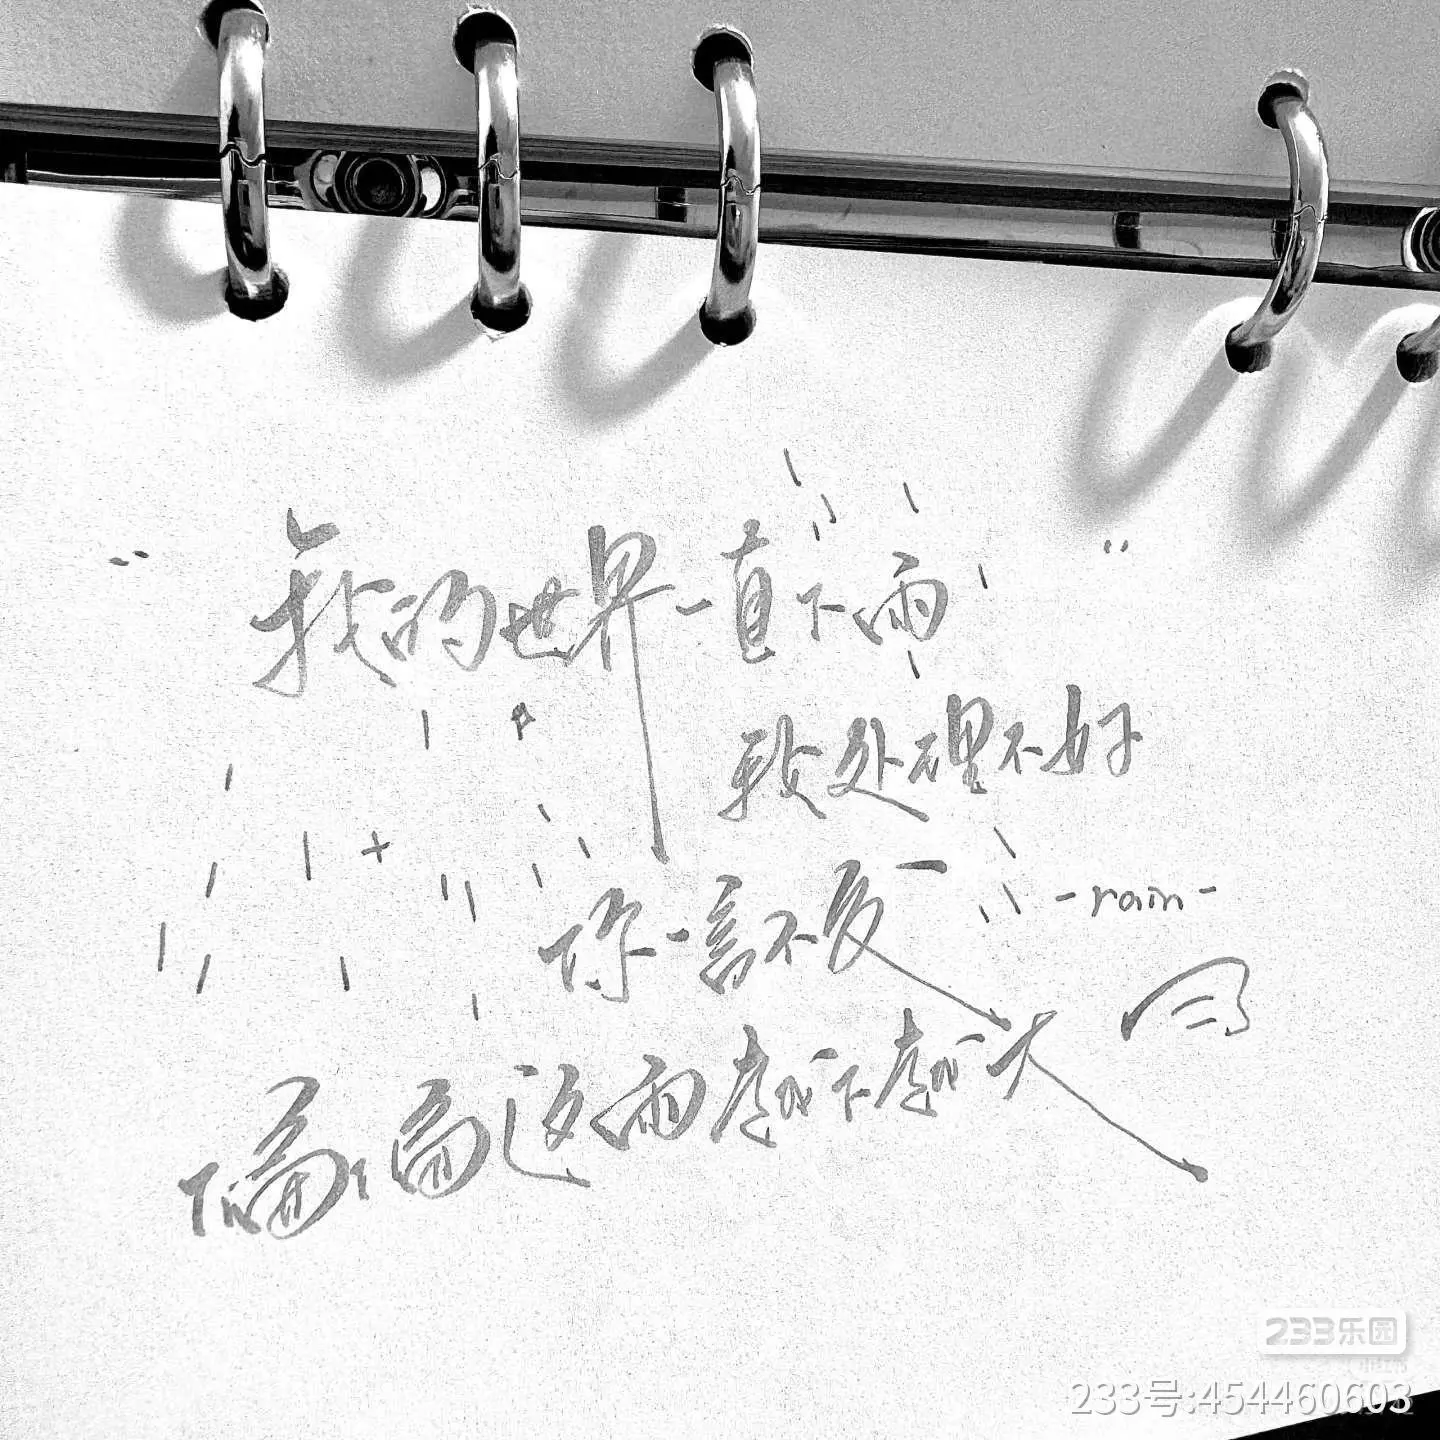 “我的世界一直下雨”
我处理不好
你一言不发
-rain-
隔着这雨越下越大
233乐园
233号:454460603